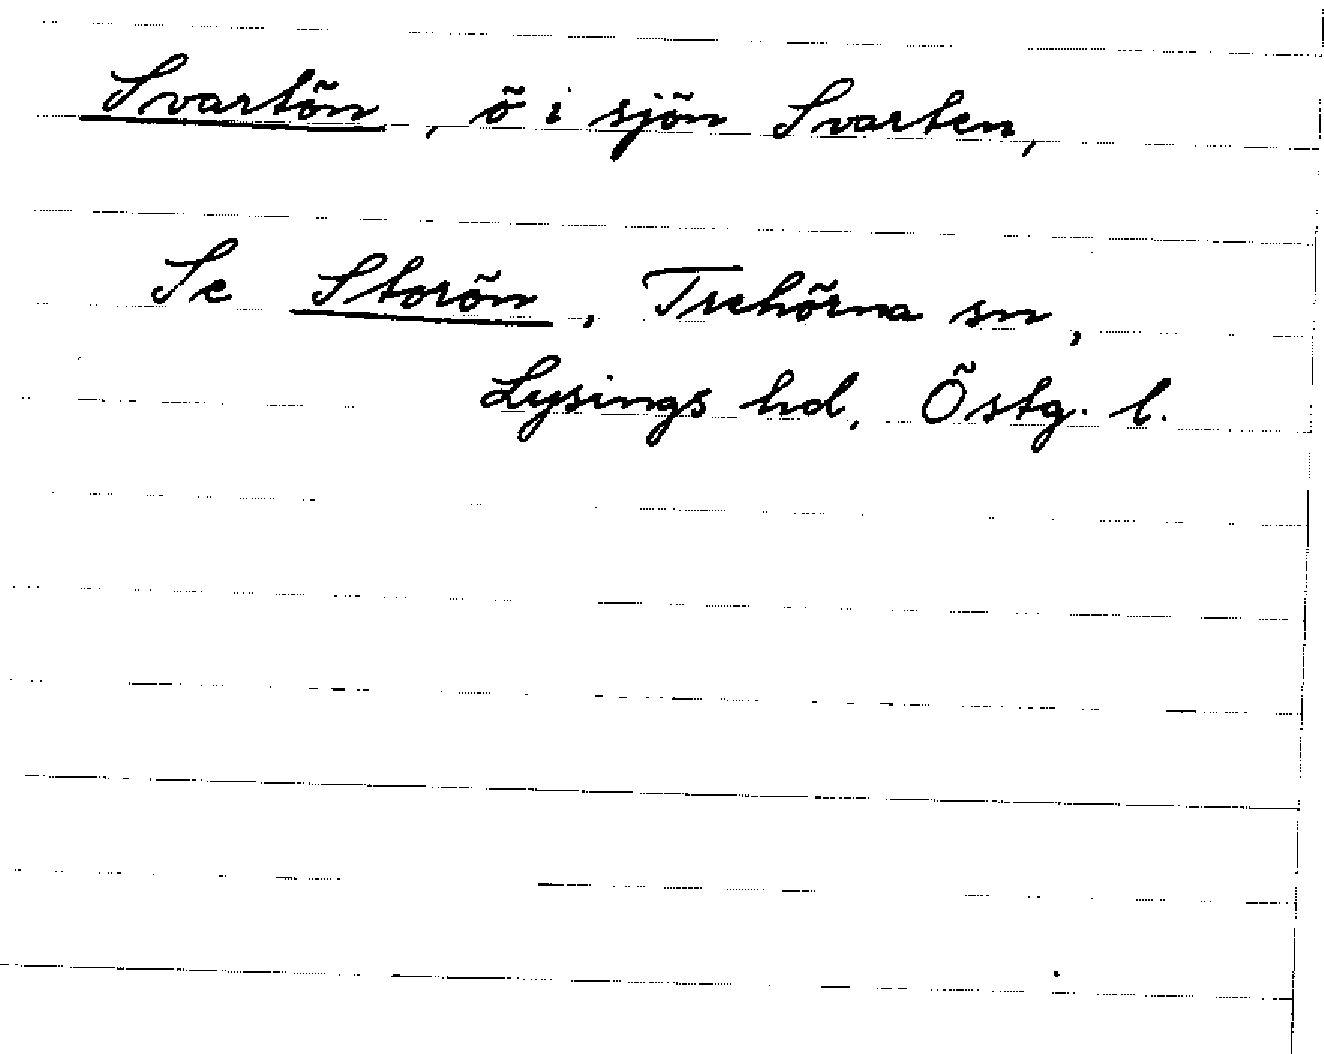 Svartön, ö i sjön Svarten,
Se Storön, Trehörna sn,
Lysings hd, Östg. l.